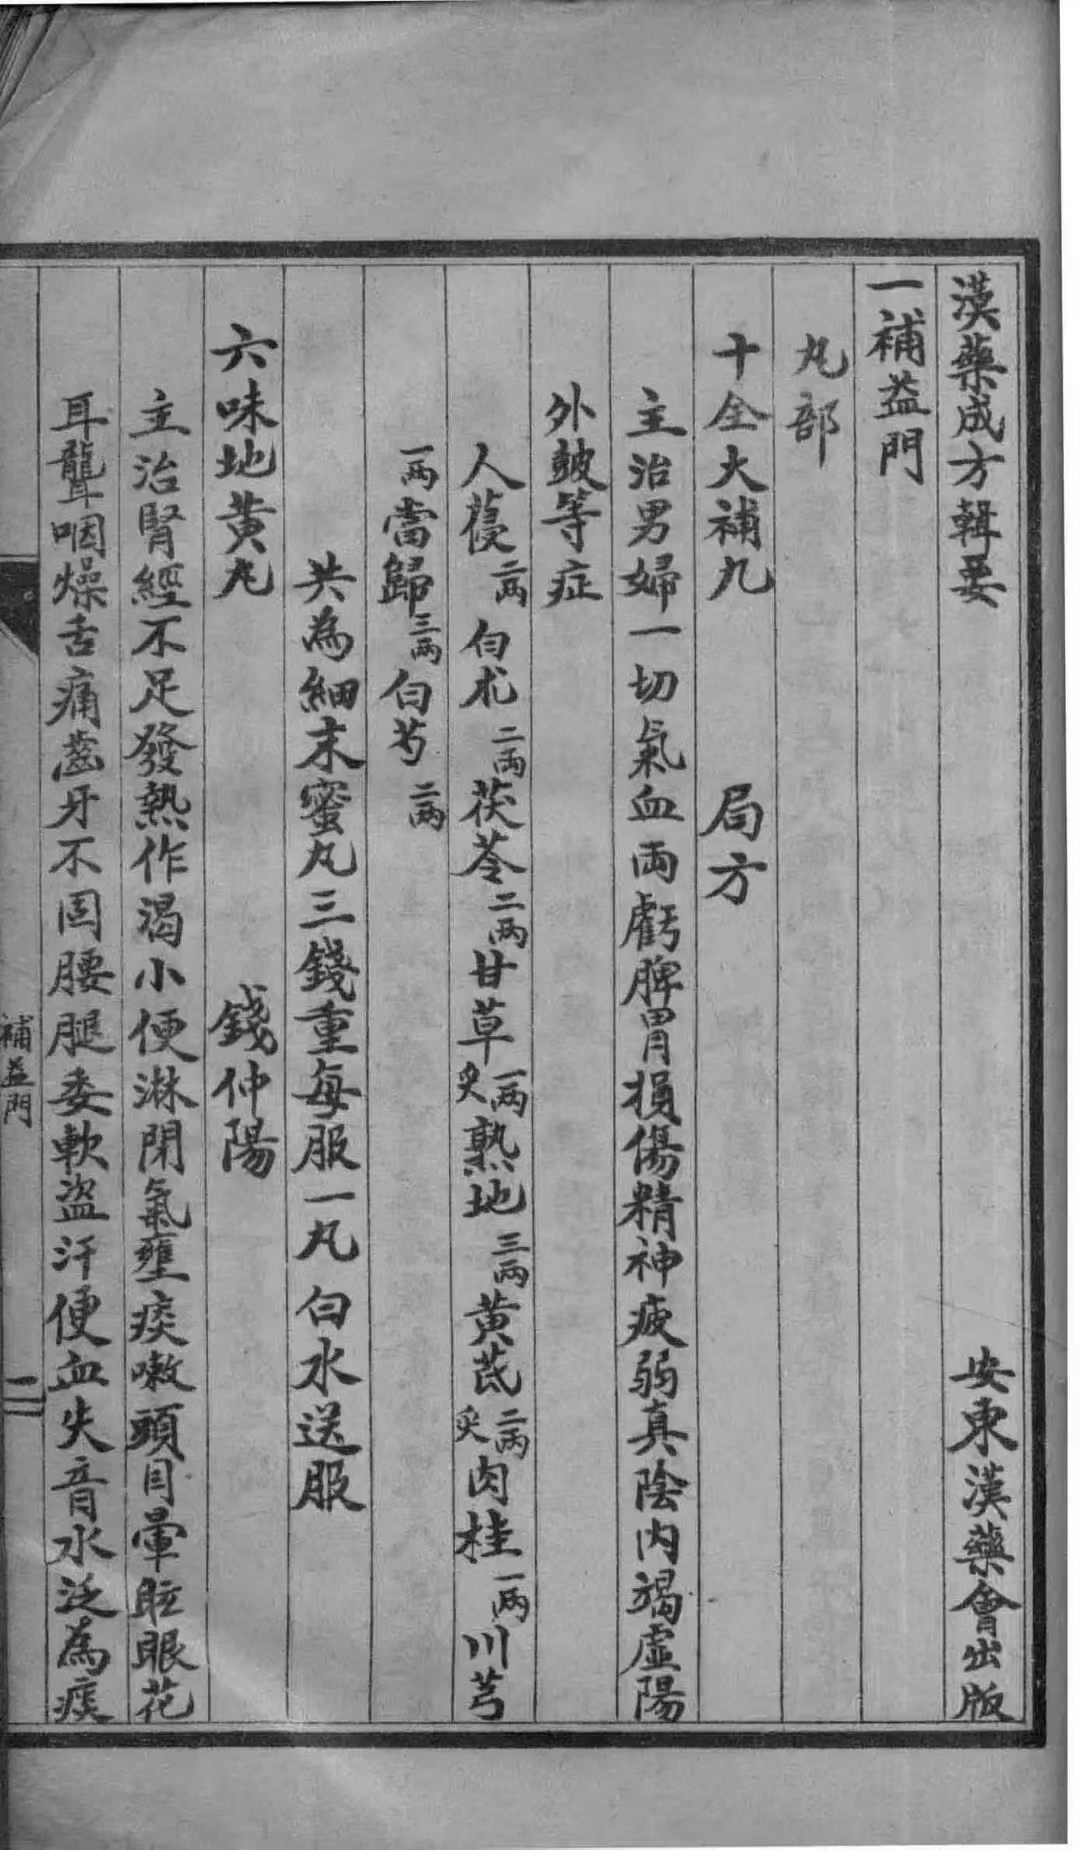 漢藥成方輯要　安東漢藥會出版
一補益門
丸部
十全大補丸　局方
主治男婦一切氣血両虧脾胃損傷精神疲弱真陰内竭虛陽
外皷等症
人葠二两白朮二两茯苓二两甘草炙一两熟地三两黄芪炙二两肉桂一两川芎
一两當歸三两白芍二两
共為細末蜜丸三錢重每服一丸白水送服
六味地黄丸　錢仲陽
主治腎經不足發熱作渴小便淋閉氣壅痰嗽頭目暈眩眼花
耳聾咽燥舌痛齒牙不固腰腿委軟盜汗便血失音水泛為痰
補益門　二